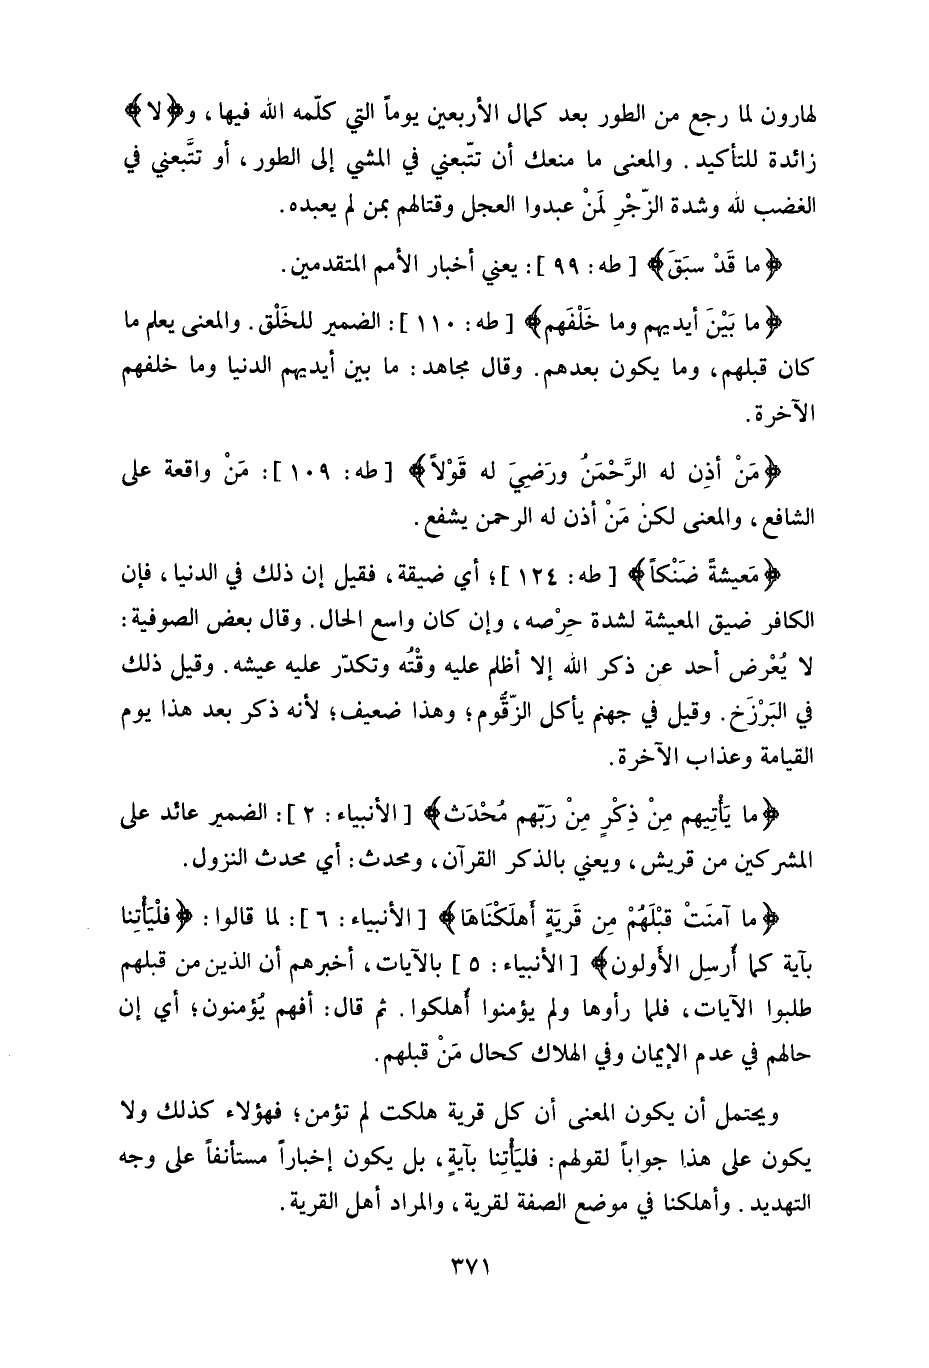 لهارون لما رجع من الطور بعد كمال الأربعين يوماً التي كلّمه الله فيها، و﴿لا﴾
زائدة للتأكيد. والمعنى ما منعك أن تتّبعني في المشي إلى الطور، أو تتَّبعني في
الغضب لله وشدة الزّجْرِ لمَنْ عبدوا العجل وقتالهم بمن لم يعبده.
﴿ما قَدْ سبَقَ﴾ [طه: ٩٩]: يعني أخبار الأمم المتقدمين.
﴿ما بَيْنَ أيديهم وما خَلْفَهم﴾ [طه: ١١٠]: الضمير للخَلْق. والمعنى يعلم ما
كان قبلهم، وما يكون بعدهم. وقال مجاهد: ما بين أيديهم الدنيا وما خلفهم
الآخرة.
﴿مَنْ أذِن له الرَّحْمَنُ ورَضِيَ له قَوْلاً﴾ [طه: ١٠٩]: مَنْ واقعة على
الشافع، والمعنى لكنْ مَنْ أذن له الرحمن يشفع.
﴿مَعيشةً ضَنْكاً﴾ [طه: ١٢٤]؛ أي ضيقة، فقيل إن ذلك في الدنيا، فإن
الكافر ضيق المعيشة لشدة حِرْصه، وإن كان واسع الحال. وقال بعض الصوفية:
لا يُعْرض أحد عن ذكر الله إلا أظلم عليه وقْتُه وتكدّر عليه عيشه. وقيل ذلك
في البَرْزَخ. وقيل في جهنم يأكل الزّقُّوم؛ وهذا ضعيف؛ لأنه ذكر بعد هذا يوم
القيامة وعذاب الآخرة.
﴿ما يَأْتِيهم مِنْ ذِكْرٍ مِنْ رَبّهم مُحْدَث﴾ [الأنبياء: ٢]: الضمير عائد على
المشركين من قريش، ويعني بالذكر القرآن، ومحدث: أي محدث النزول.
﴿ما آمنَتْ قبْلَهُمْ مِن قَريَةٍ أهلَكْنَاهَا﴾ [الأنبياء: ٦]: لما قالوا: ﴿فلْيَأْتِنا
بآية كما أُرسِل الأولون﴾ [الأنبياء: ٥] بالآيات، أخبرهم أن الذين من قبلهم
طلبوا الآيات، فلما رأوها ولم يؤمنوا أُهلكوا. ثم قال: أفهم يُؤمنون؛ أي إن
حالهم في عدم الإيمان وفي الهلاك كحال مَنْ قبلهم.
ويحتمل أن يكون المعنى أن كل قرية هلكت لم تؤمن؛ فهؤلاء كذلك ولا
يكون على هذا جواباً لقولهم: فليَأْتِنا بآيةٍ، بل يكون إخباراً مستأنفاً على وجه
التهديد. وأهلكنا في موضع الصفة لقرية، والمراد أهل القرية.
٣٧١